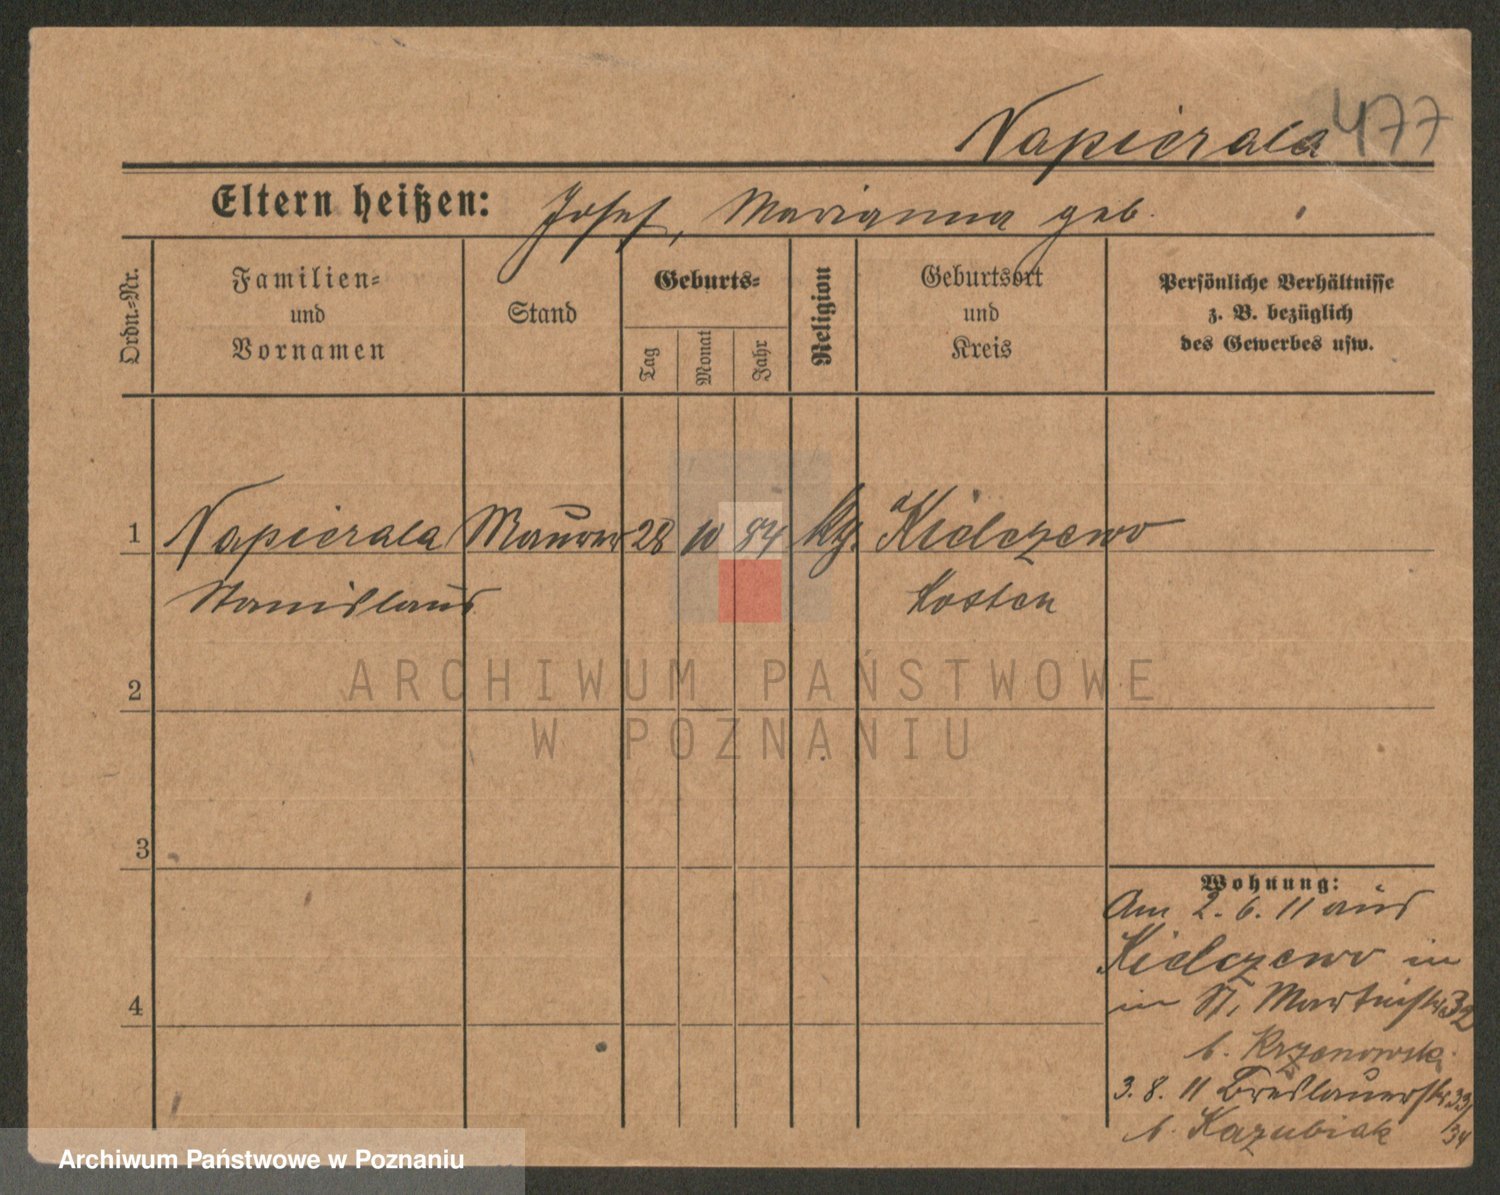 Napierala 477
Eltern heißen: Josef, Marianna geb.
Ordn.-Nr.
Familien-
und
Vornamen
Stand
Geburts-
Tag
Monat
Jahr
Religion
Geburtsort
und
Kreis
Persönliche Verhältnisse
z. B. bezüglich
des Gewerbes usw.
1 Napierala Maurer 28 10 84 Kidczewo
Stanislaus Kosten
2
3
4
Wohnung:
Am 2. 6. 11 aus
Kidczewo in
in St. Martinstr 32
b. Krzanowski
3. 8. 11 Breslauerstr 33/
34
b. Kazubiak
ARCHIWUM PAŃSTWOWE
W POZNANIU
Archiwum Państwowe w Poznaniu